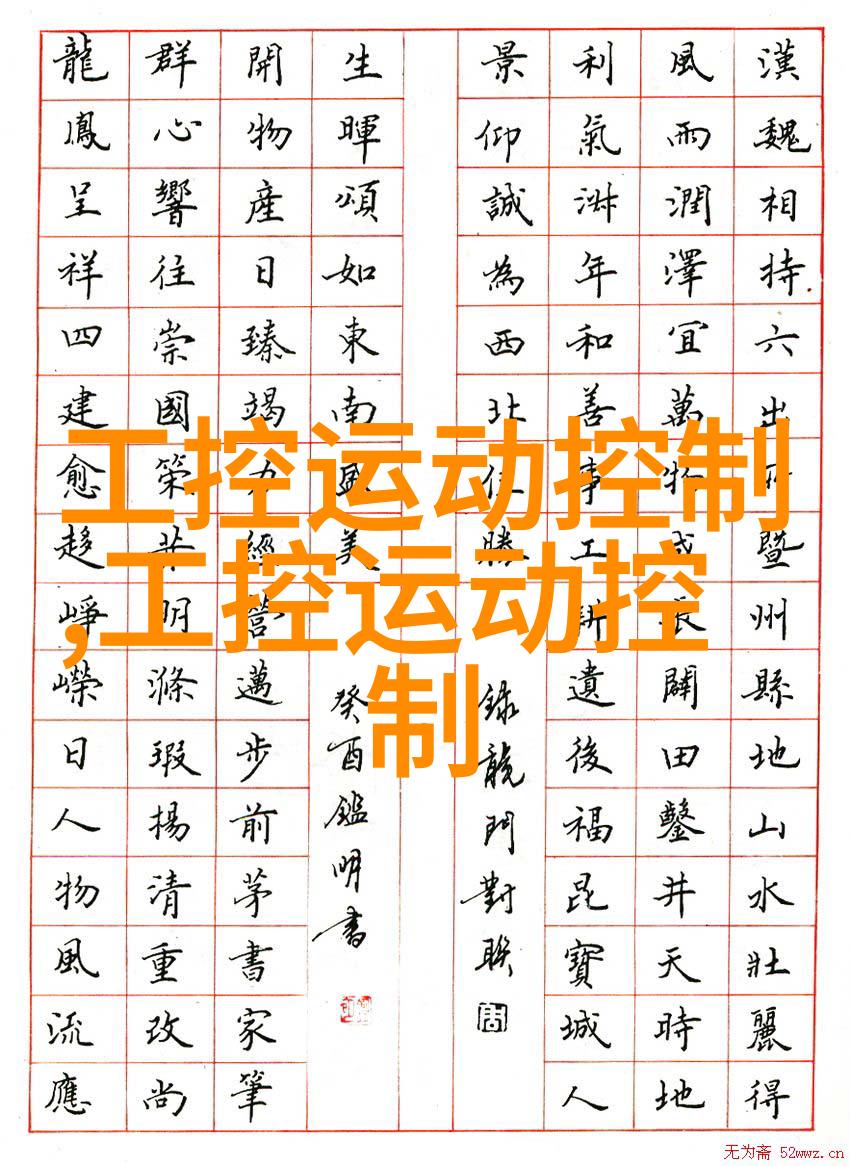 漢魏相持六出所暨州縣地山水壯麗得
風雨潤澤宜萬物長闢田鑿井天時地
利氣年和善事工耕遺後福昆寶城人
景仰誠為西北佳勝
錄龍門對聯
生暉頌如東南盛美
癸酉鑑明書
開物產日臻竭力經營邁步前茅書家筆
群心響往崇國榮共明滌瑕揚清重改尚
龍鳳呈祥四建愈趍崢嶸日人物風流應
工控运动控制
,工控运动控
制
无为斋 52wwz.cn